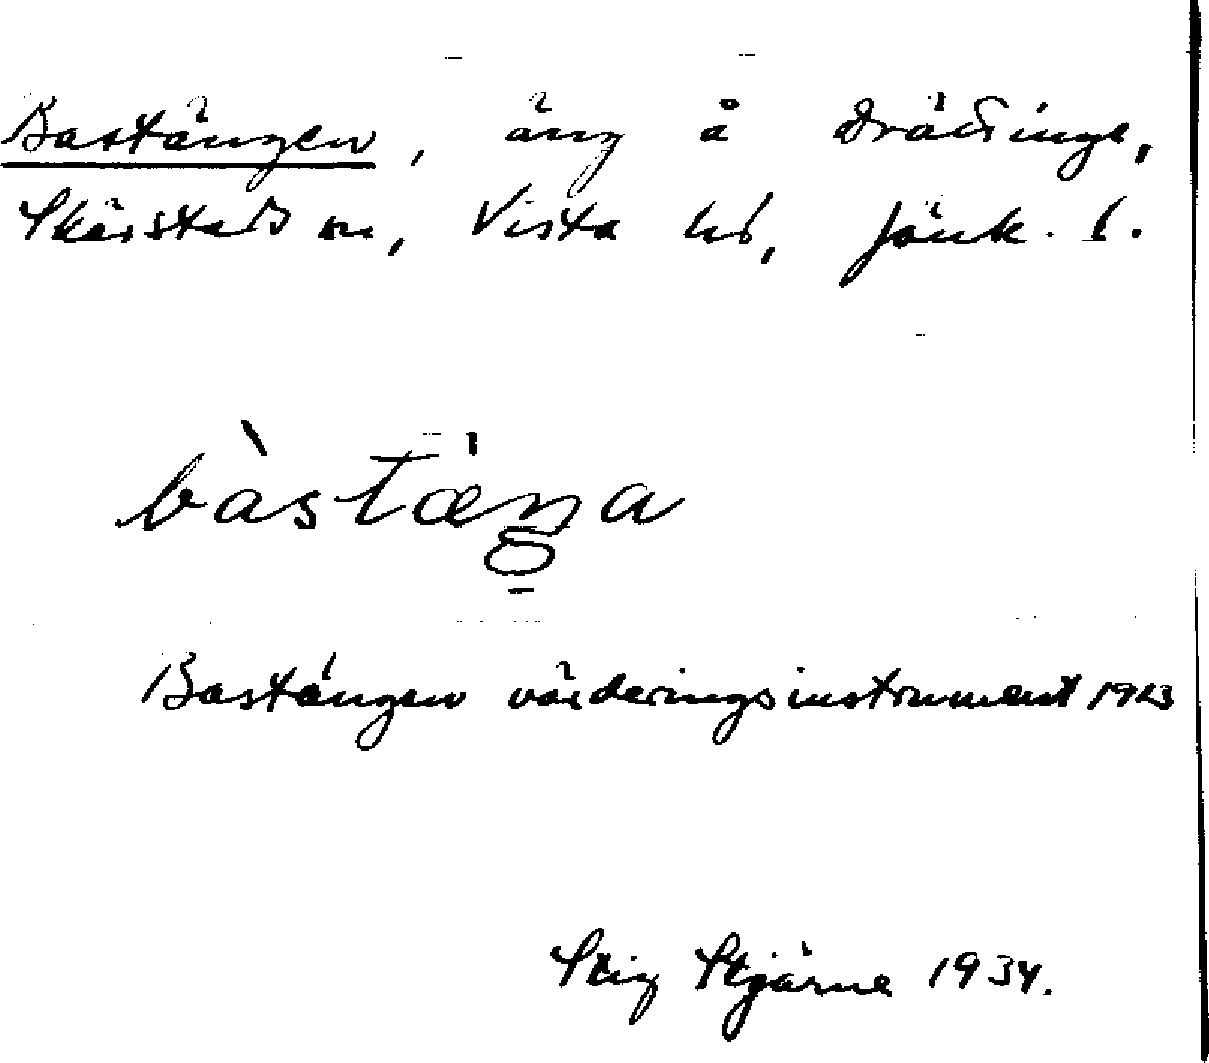 Bastängen, äng å Drättinge,
Skärstad sn, Vista hd, Jönk. l.
bàstæŋa
Bastängen värderingsinstrument 1913
Stig Stjärne 1934.